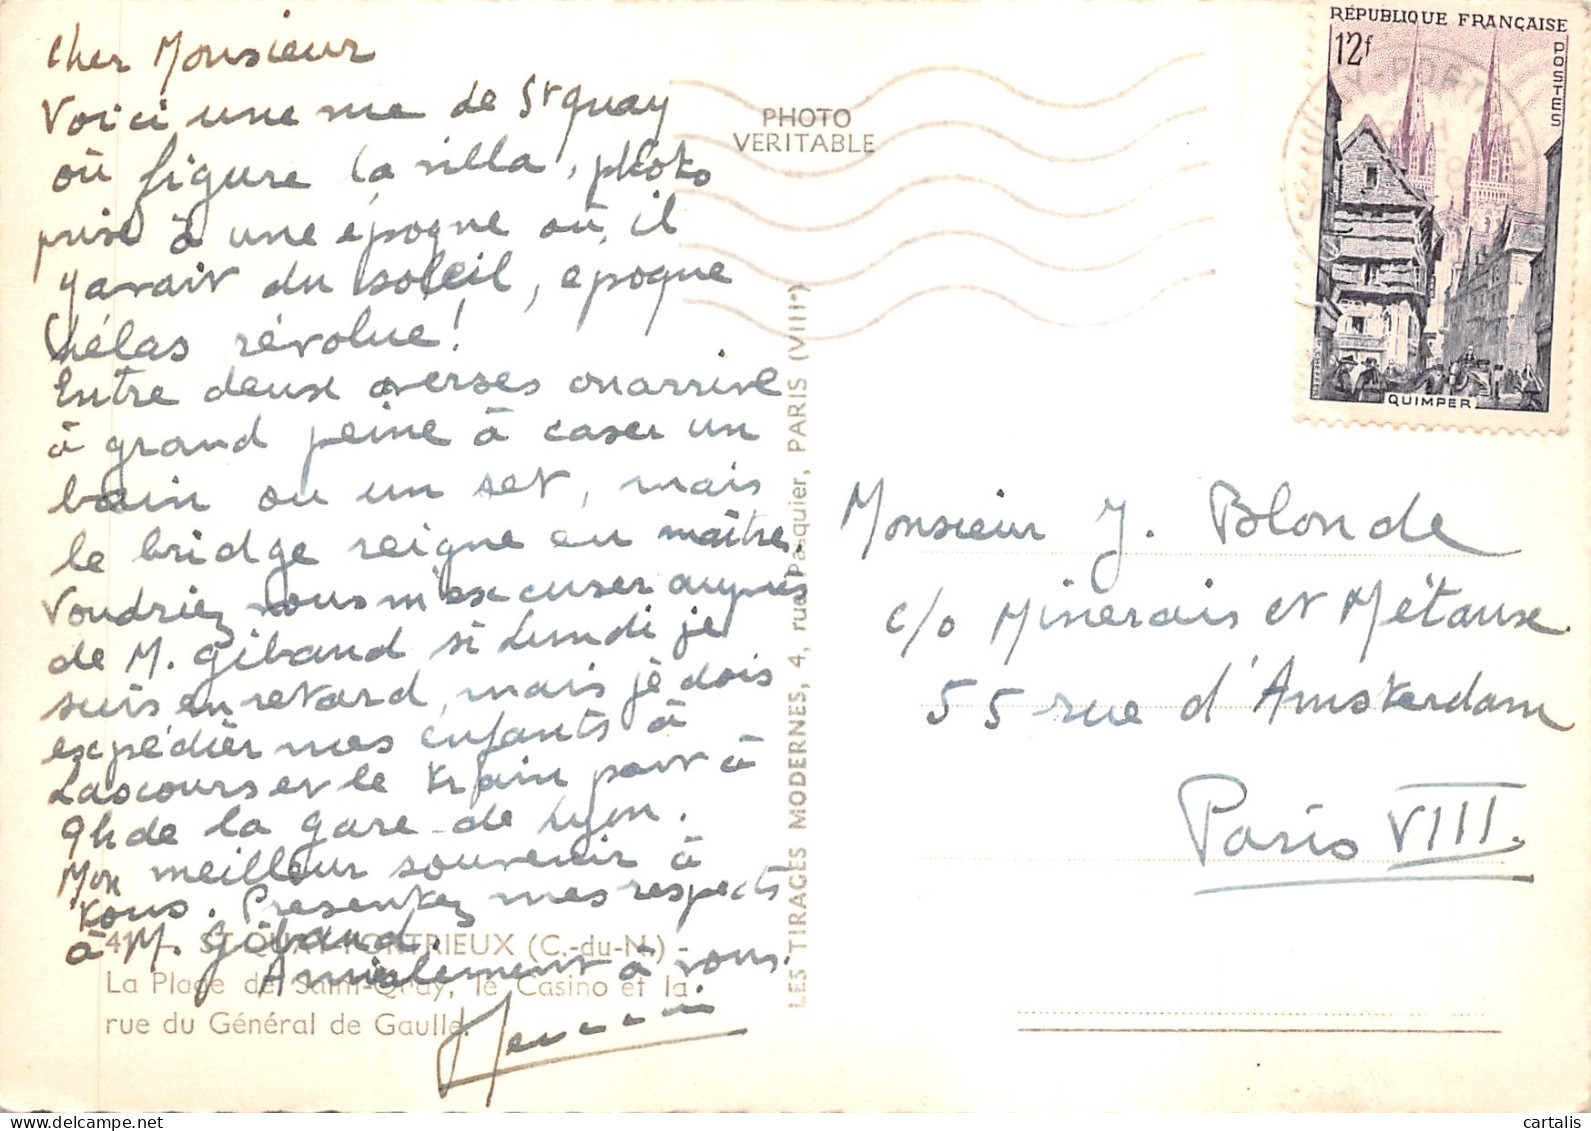 Cher Monsieur
Voici une vue de St Quay
où figure la villa, photo
prise à une époque où il
y avait du soleil, époque
hélas révolue!
Entre deux averses on arrive
à grand peine à caser un
bain ou un set, mais
le bridge reigne en maître.
Voudriez vous m'excuser auprès
de M. Giband si Lundi je
suis en retard, mais je dois
expédier mes enfants à
Lascours et le train part à
9h de la gare de Lyon.
Mon meilleur souvenir à
tous. Présentez mes respects
à M. Giband.
Amicalement à vous.
PHOTO
VERITABLE
RÉPUBLIQUE FRANÇAISE
12f
POSTES
QUIMPER
LES TIRAGES MODERNES, 4, rue Pasquier, PARIS (VIIIe)
Monsieur J. Blonde
c/o Minerais et Métaux
55 rue d'Amsterdam
Paris VIII.
ST-QUAY-PORTRIEUX (C.-du-N.) -
La Plage de Saint-Quay, le Casino et la
rue du Général de Gaulle.
cartalis